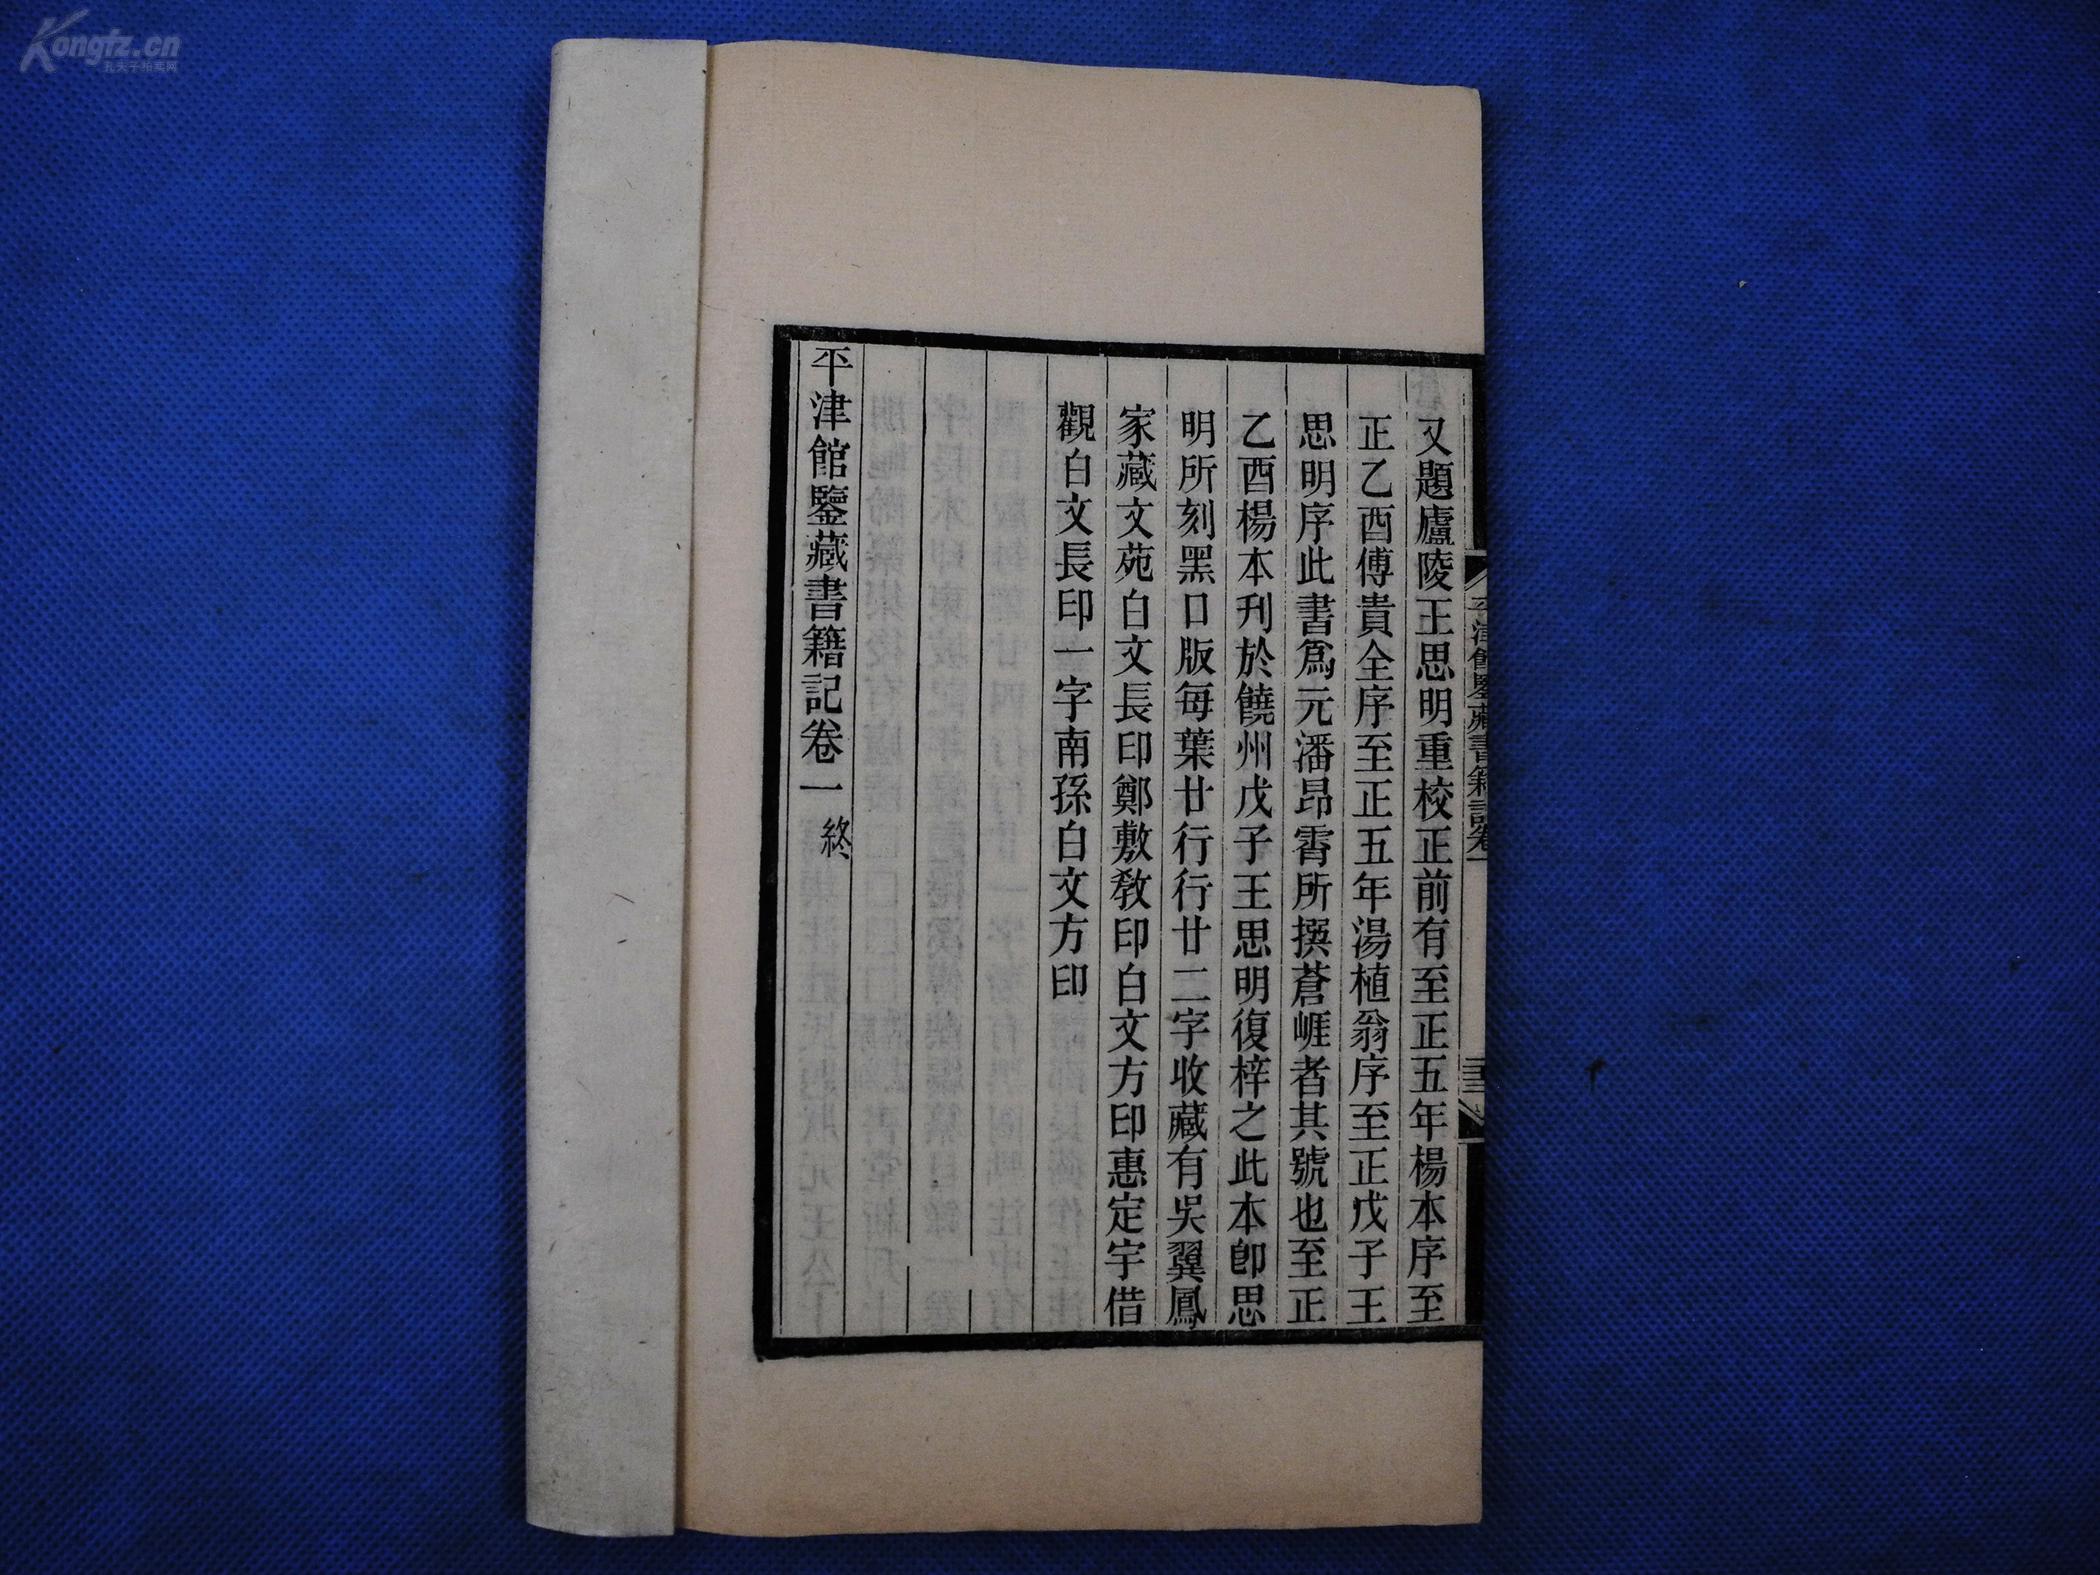 又題廬陵王思明重校正前有至正五年楊本序至
正乙酉傅貴全序至正五年湯植翁序至正戊子王
思明序此書爲元潘昂霄所撰蒼崕者其號也至正
乙酉楊本刊於饒州戊子王思明復梓之此本卽思
明所刻黑口版每葉廿行行廿二字收藏有吳翼鳳
家藏文苑白文長印鄭敷教印白文方印惠定宇借
觀白文長印一字南孫白文方印
平津館鑒藏書籍記卷一 終
平津館鑒藏書籍記卷一
Kongfz.cn
孔夫子拍卖网